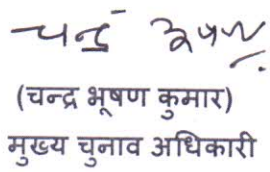 चन्द्र भूषण
(चन्द्र भूषण कुमार)
मुख्य चुनाव अधिकारी